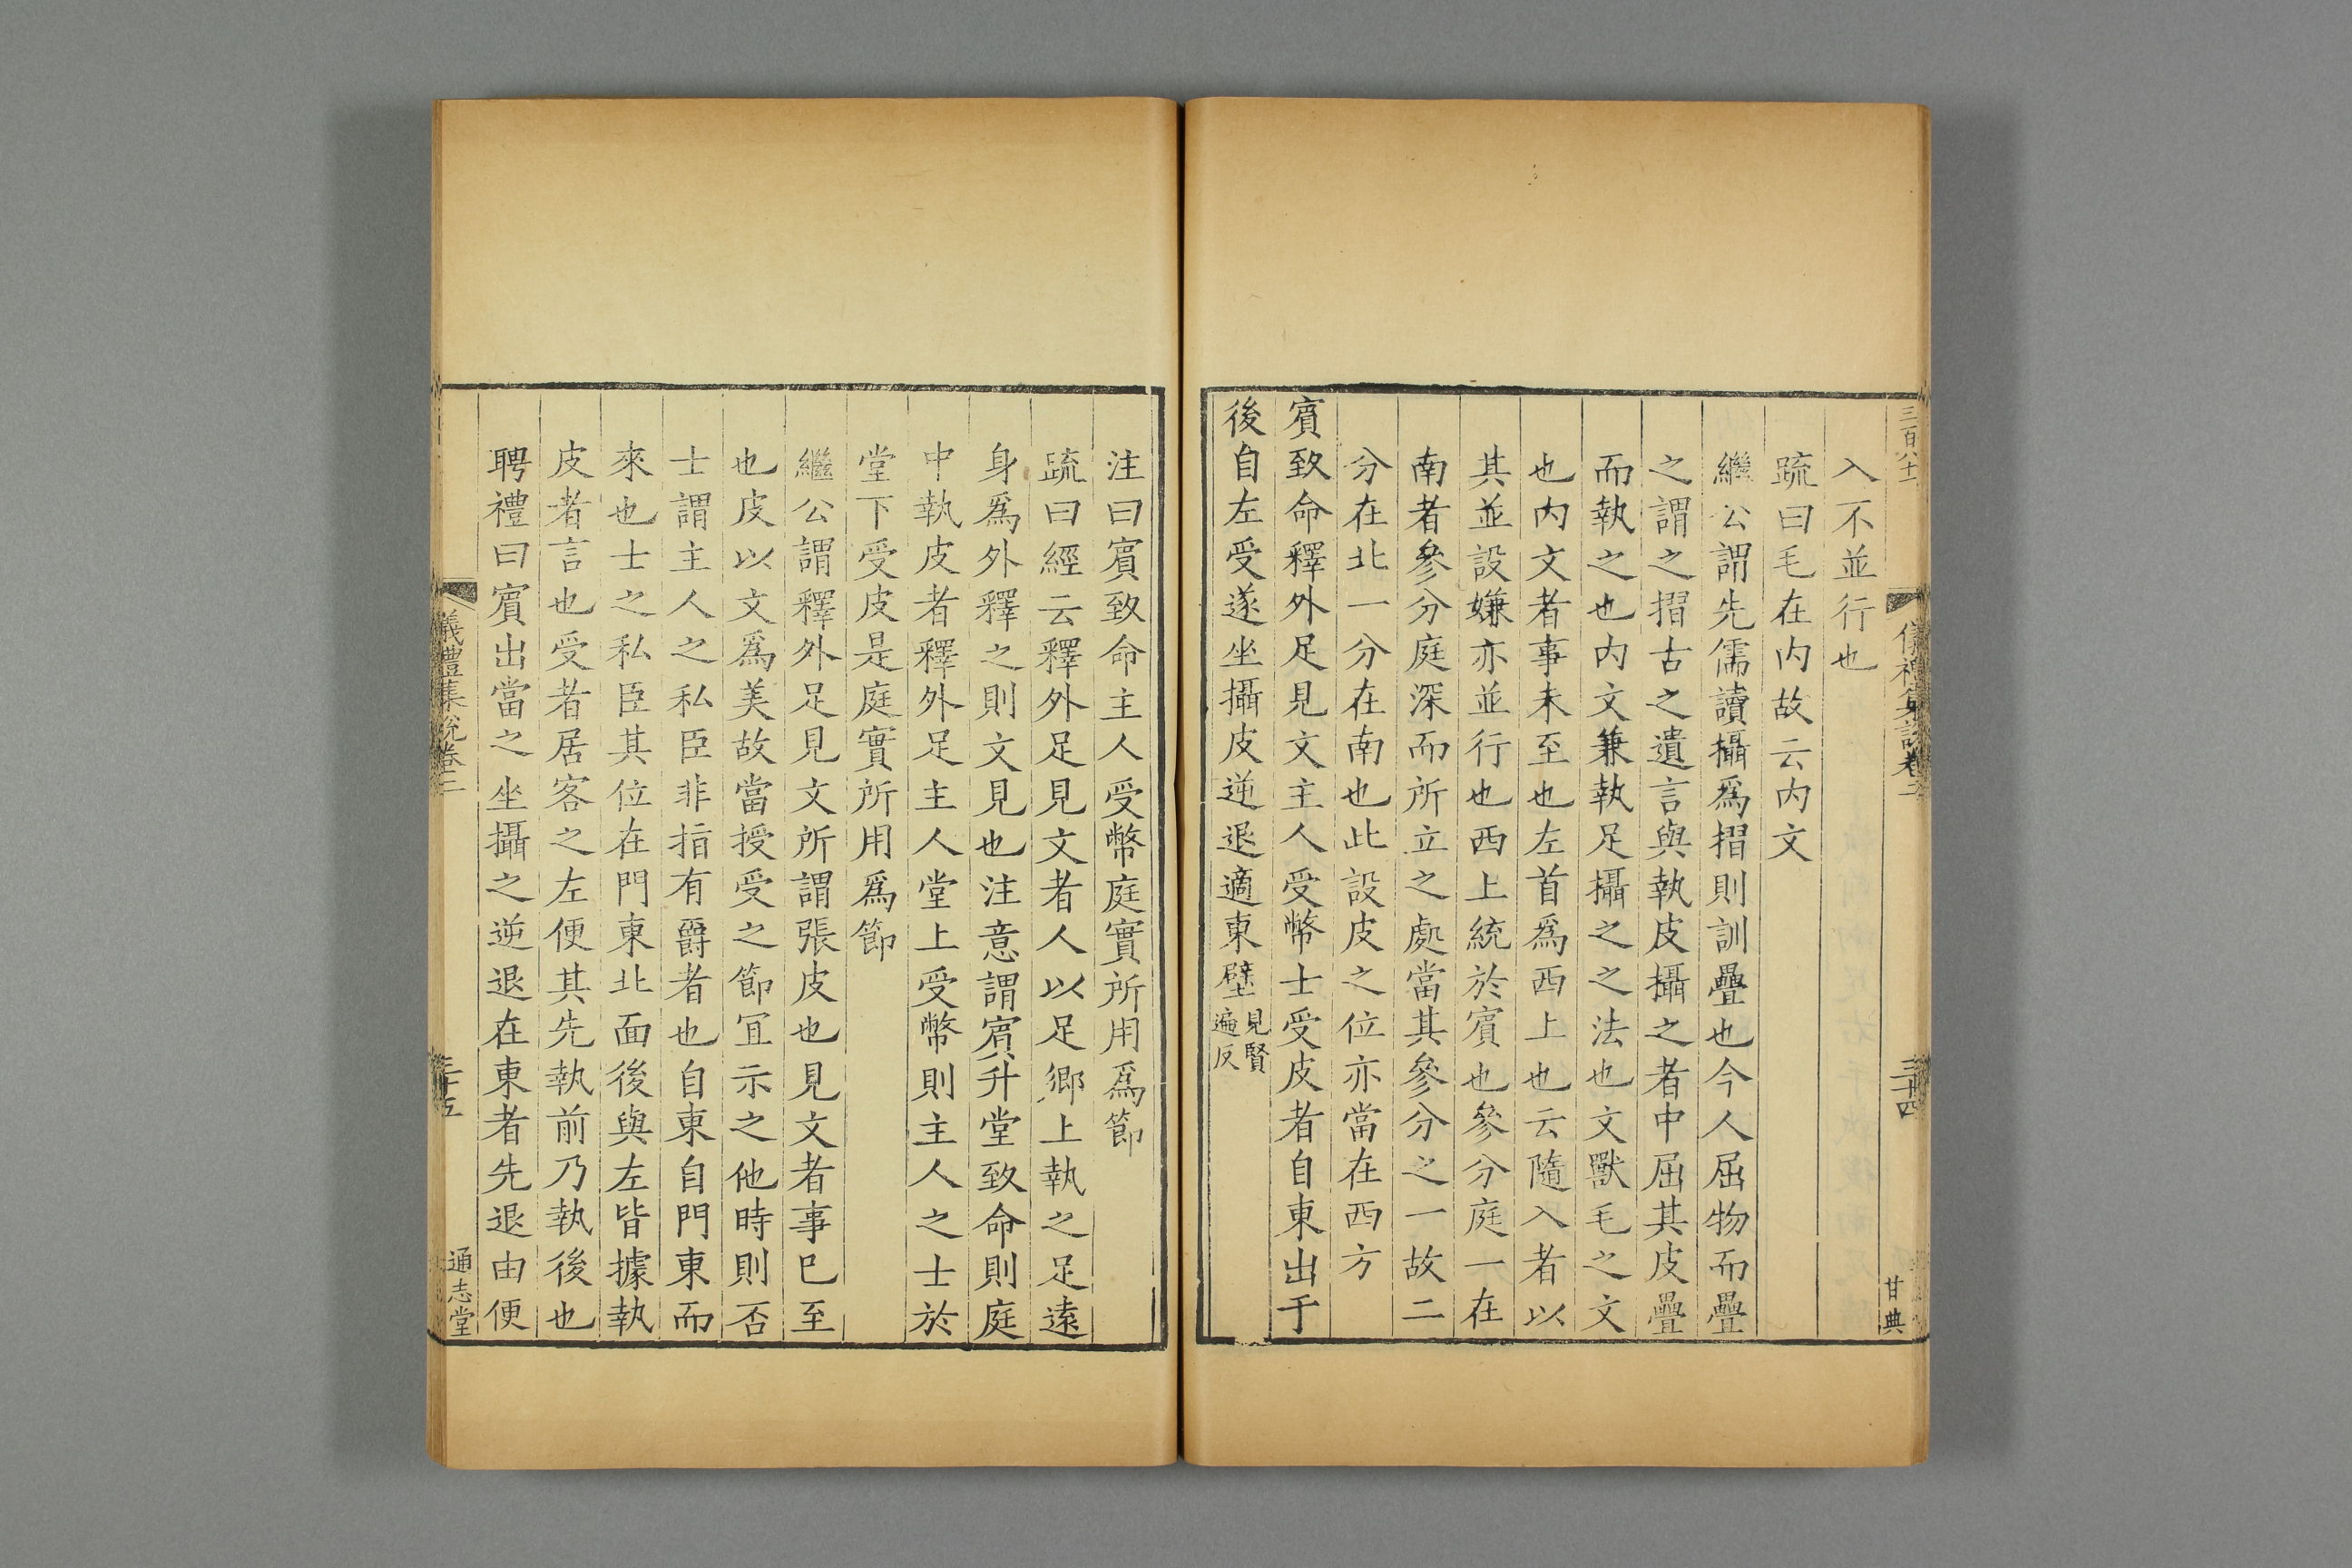 三百八十一
儀禮集說卷二
三十四
甘典
入不並行也
疏曰毛在内故云内文
繼公謂先儒讀攝爲摺則訓疊也今人屈物而疊
之謂之摺古之遺言與執皮攝之者中屈其皮疊
而執之也内文兼執足攝之之法也文獸毛之文
也内文者事未至也左首爲西上也云隨入者以
其並設嫌亦並行也西上統於賓也參分庭一在
南者參分庭深而所立之處當其參分之一故二
分在北一分在南也此設皮之位亦當在西方
賓致命釋外足見文主人受幣士受皮者自東出于
後自左受遂坐攝皮逆退適東壁見賢遍反
注曰賓致命主人受幣庭實所用爲節
疏曰經云釋外足見文者人以足鄉上執之足遠
身爲外釋之則文見也注意謂賓升堂致命則庭
中執皮者釋外足主人堂上受幣則主人之士於
堂下受皮是庭實所用爲節
繼公謂釋外足見文所謂張皮也見文者事巳至
也皮以文爲美故當授受之節冝示之他時則否
士謂主人之私臣非指有爵者也自東自門東而
來也士之私臣其位在門東北面後與左皆據執
皮者言也受者居客之左便其先執前乃執後也
聘禮曰賓出當之坐攝之逆退在東者先退由便
儀禮集說卷二
三十五
通志堂